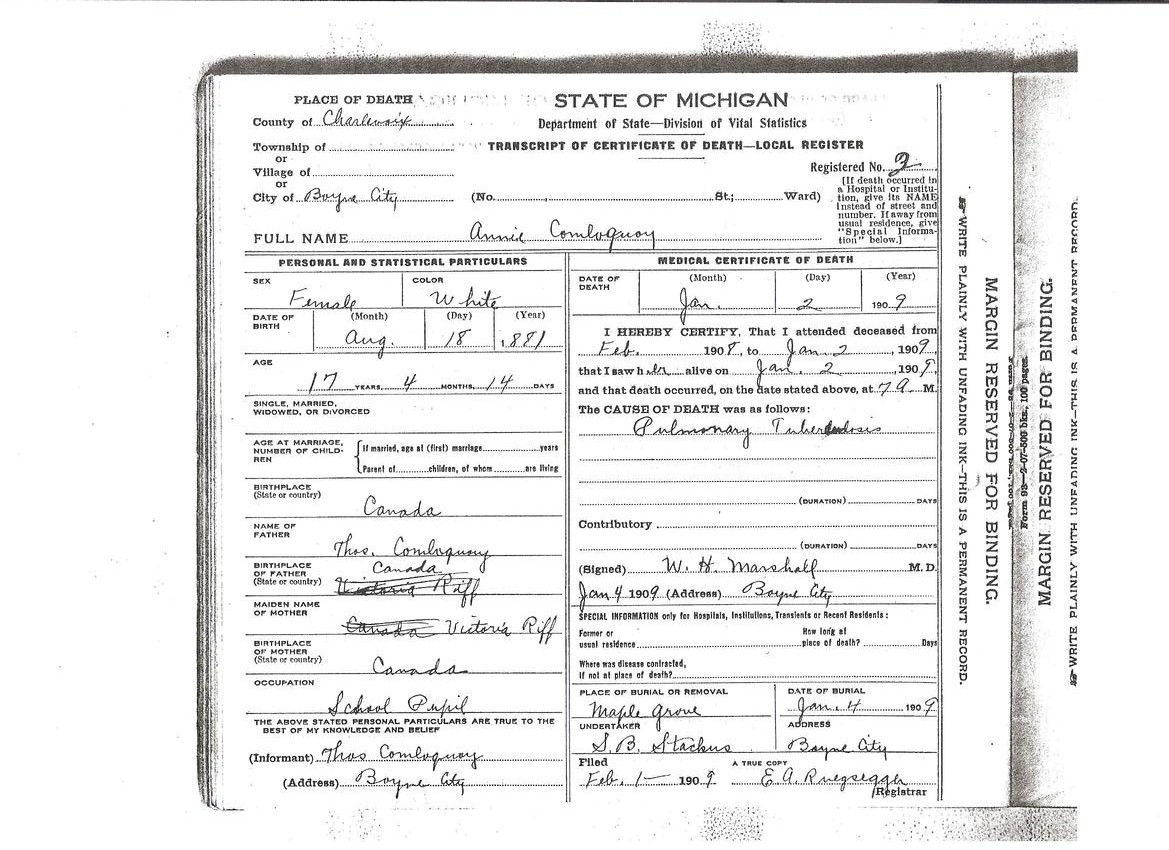 PLACE OF DEATH
County of Charlevoix
Township of
or
Village of
or
City of Boyne City
STATE OF MICHIGAN
Department of State—Division of Vital Statistics
TRANSCRIPT OF CERTIFICATE OF DEATH—LOCAL REGISTER
Registered No. 3
(No. , St.; Ward)
[If death occurred in
a Hospital or Institu-
tion, give its NAME
instead of street and
number. If away from
usual residence, give
"Special Informa-
tion" below.]
FULL NAME Annie Comloquoy
PERSONAL AND STATISTICAL PARTICULARS
SEX Female
COLOR White
DATE OF BIRTH
(Month) (Day) (Year)
Aug. 18 , 1881
AGE
17 YEARS, 4 MONTHS, 14 DAYS
SINGLE, MARRIED,
WIDOWED, OR DIVORCED
AGE AT MARRIAGE,
NUMBER OF CHILD-
REN
If married, age at (first) marriage years
Parent of children, of whom are living
BIRTHPLACE
(State or country)
Canada
NAME OF
FATHER
Thos. Comloquoy
BIRTHPLACE
OF FATHER
(State or country)
Canada
Victoria Riff
MAIDEN NAME
OF MOTHER
Canada Victoria Riff
BIRTHPLACE
OF MOTHER
(State or country)
Canada
OCCUPATION
School Pupil
THE ABOVE STATED PERSONAL PARTICULARS ARE TRUE TO THE
BEST OF MY KNOWLEDGE AND BELIEF
(Informant) Thos Comloquoy
(Address) Boyne City
MEDICAL CERTIFICATE OF DEATH
DATE OF
DEATH
(Month) (Day) (Year)
Jan. 2 1909
I HEREBY CERTIFY, That I attended deceased from
Feb. 1908, to Jan. 2, 1909
that I saw her alive on Jan. 2, 1909,
and that death occurred, on the date stated above, at 7 A M.
The CAUSE OF DEATH was as follows:
Pulmonary Tuberculosis
(DURATION) DAYS
Contributory
(DURATION) DAYS
(Signed) W. H. Marshall M. D.
Jan 4 1909 (Address) Boyne City
SPECIAL INFORMATION only for Hospitals, Institutions, Transients or Recent Residents:
Former or
usual residence
How long at
place of death? Days
Where was disease contracted,
if not at place of death?
PLACE OF BURIAL OR REMOVAL
Maple Grove
DATE OF BURIAL
Jan. 4 1909
UNDERTAKER
S. B. Stackus
ADDRESS
Boyne City
Filed
Feb. 1— 1909
A TRUE COPY
E. A. Ruegsegger
Registrar
WRITE PLAINLY WITH UNFADING INK—THIS IS A PERMANENT RECORD.
MARGIN RESERVED FOR BINDING.
Form 98—2-07-500 bks, 100 pages
MARGIN RESERVED FOR BINDING.
WRITE PLAINLY WITH UNFADING INK—THIS IS A PERMANENT RECORD.